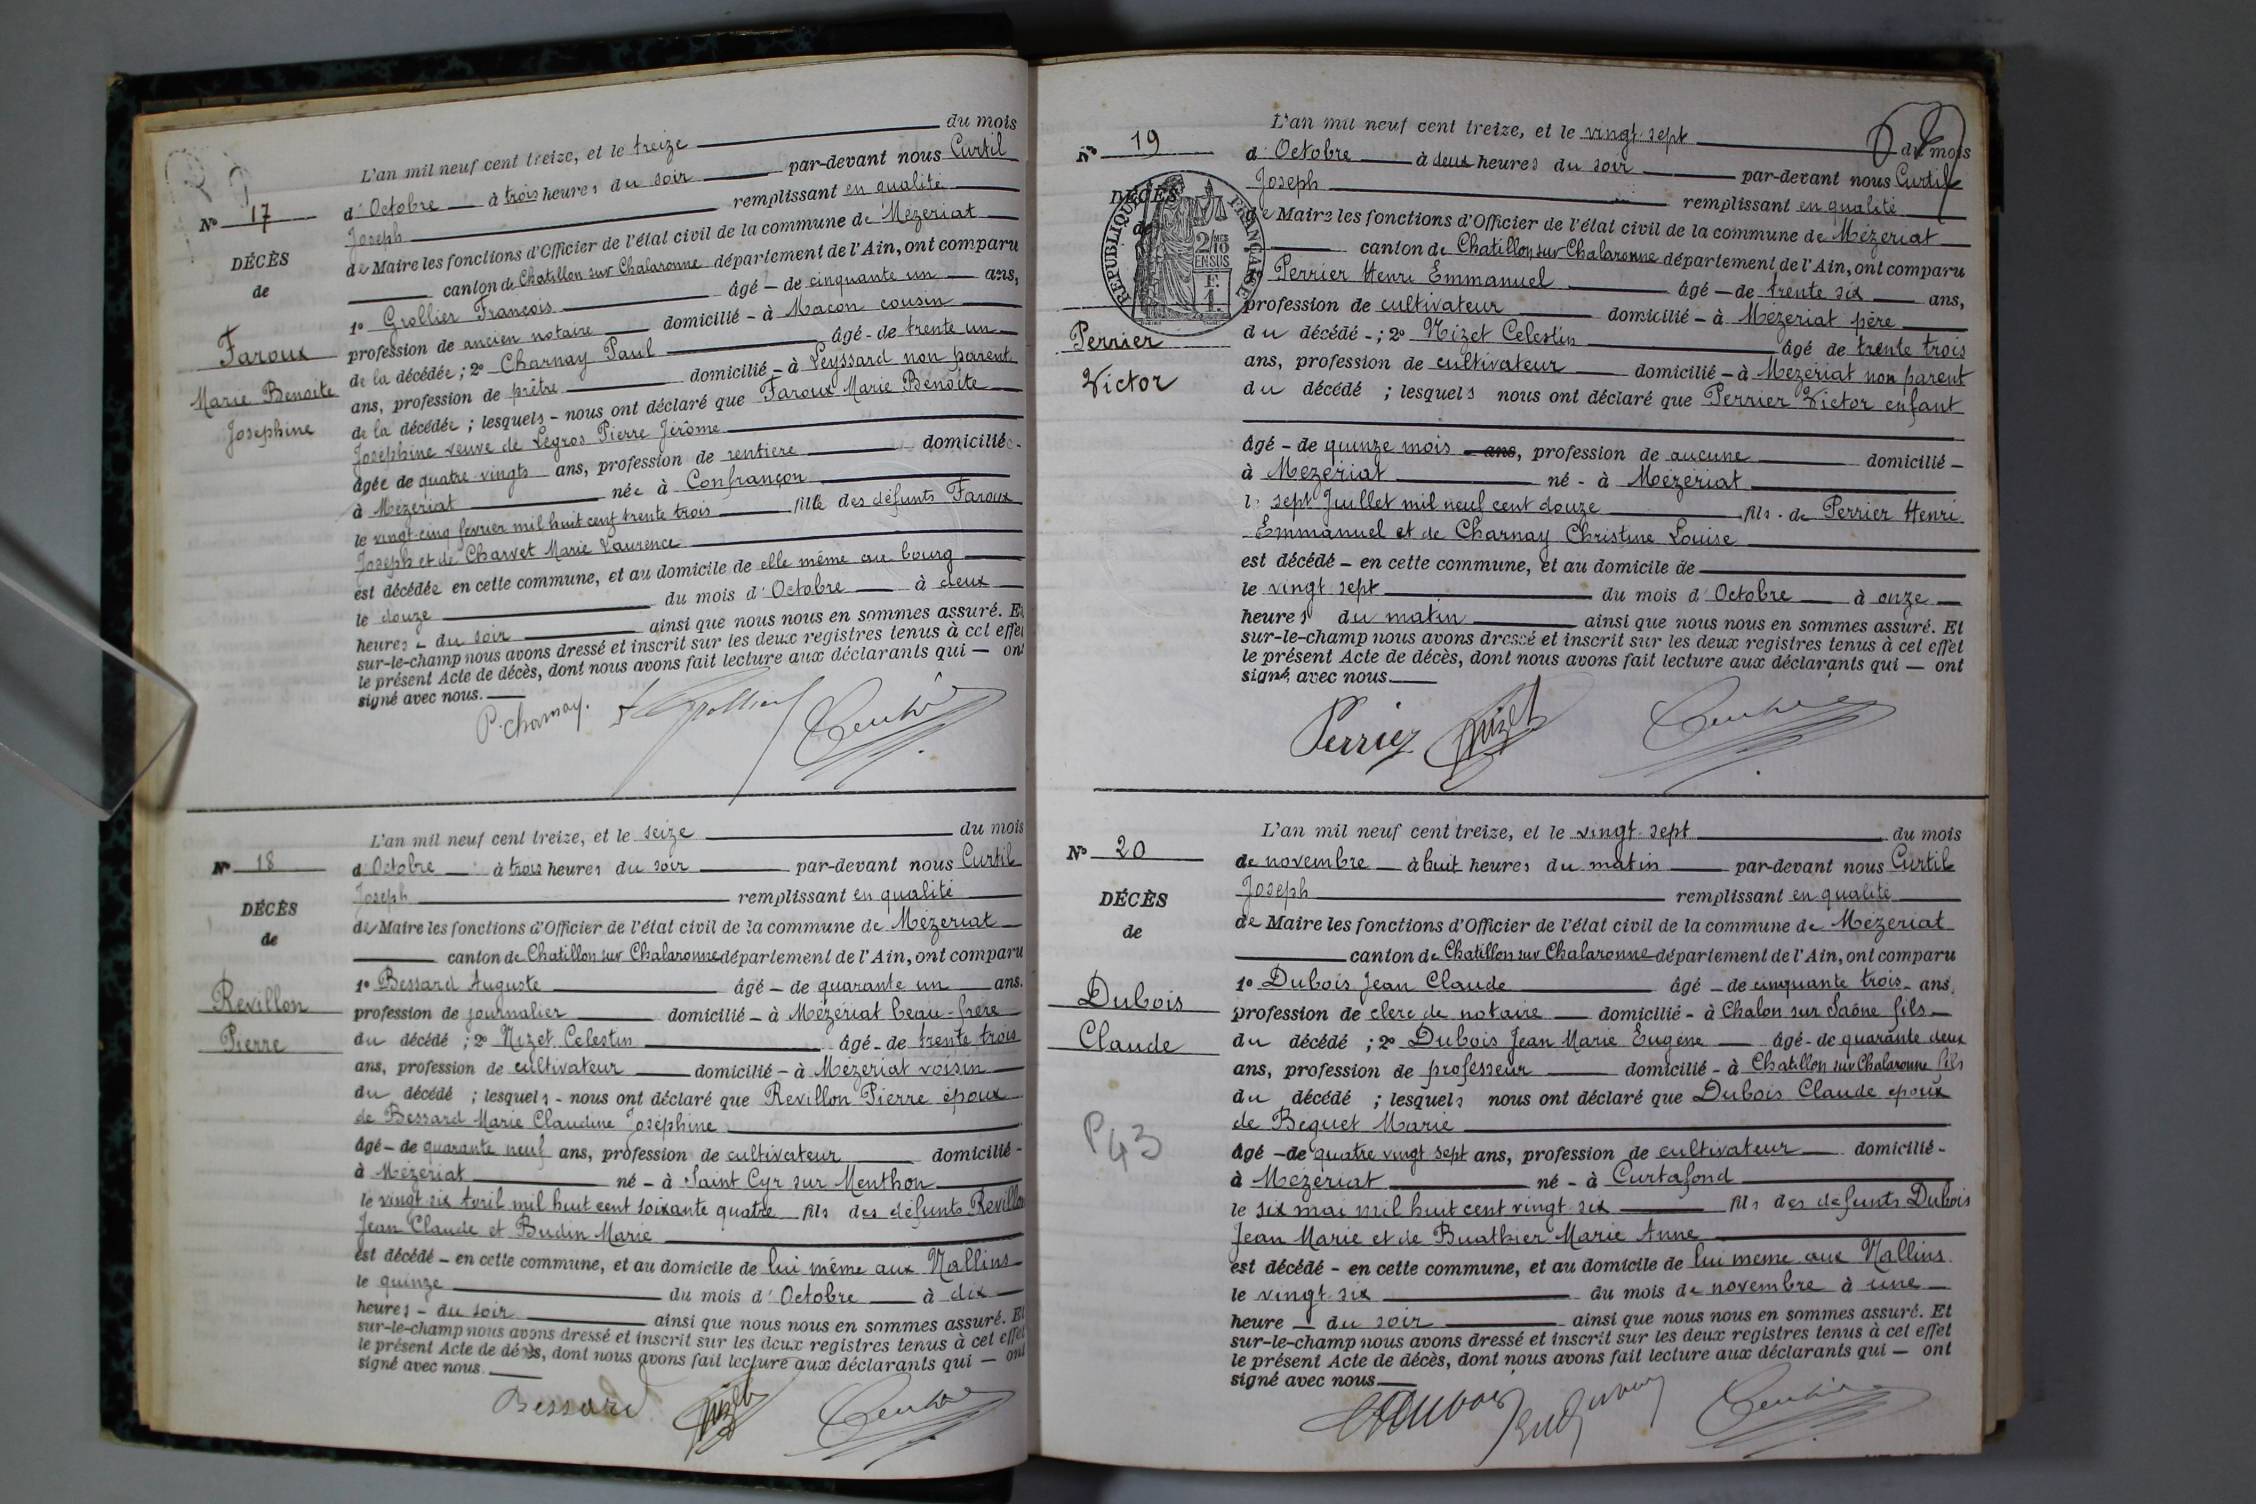 Nº 17
DÉCÈS
de
Faroux
Marie Benoite
Josephine
L'an mil neuf cent treize, et le treize du mois
d'Octobre à trois heures du soir par-devant nous Curtil
Joseph remplissant en qualité
de Maire les fonctions d'Officier de l'état civil de la commune de Mézériat
canton de Chatillon sur Chalaronne département de l'Ain, ont comparu
1º Grollier François âgé - de cinquante un ans,
profession de ancien notaire domicilié - à Macon cousin
de la décédée ; 2º Charnay Paul âgé - de trente un
ans, profession de prêtre domicilié - à Leyssard non parent
de la décédée ; lesquels - nous ont déclaré que Faroux Marie Benoite
Joséphine veuve de Légros Pierre Jérôme
âgée de quatre-vingts ans, profession de rentière domiciliée -
à Mézériat née à Confrançon
le vingt-cinq février mil huit cent trente trois fille des défunts Faroux
Joseph et de Charvet Marie Laurence
est décédée en cette commune, et au domicile de elle même au bourg
le douze du mois d'Octobre à deux
heures - du soir ainsi que nous nous en sommes assuré. Et
sur-le-champ nous avons dressé et inscrit sur les deux registres tenus à cet effet
le présent Acte de décès, dont nous avons fait lecture aux déclarants qui — ont
signé avec nous.
P. Charnay. Grollier Curtil
Nº 18
DÉCÈS
de
Revillon
Pierre
L'an mil neuf cent treize, et le seize du mois
d'Octobre à trois heures du soir par-devant nous Curtil
Joseph remplissant en qualité
de Maire les fonctions d'Officier de l'état civil de la commune de Mézériat
canton de Chatillon sur Chalaronne département de l'Ain, ont comparu
1º Bessard Auguste âgé - de quarante un ans.
profession de journalier domicilié - à Mézériat beau-frère
du décédé ; 2º Nizet Celestin âgé - de trente trois
ans, profession de cultivateur domicilié - à Mézériat voisin
du décédé ; lesquels - nous ont déclaré que Revillon Pierre époux
de Bessard Marie Claudine Joséphine
âgé - de quarante neuf ans, profession de cultivateur domicilié -
à Mézériat né - à Saint Cyr sur Menthon
le vingt six Avril mil huit cent soixante quatre fils des défunts Revillon
Jean Claude et Budin Marie
est décédé - en cette commune, et au domicile de lui même aux Nallins
le quinze du mois d'Octobre à dix
heures - du soir ainsi que nous nous en sommes assuré. Et
sur-le-champ nous avons dressé et inscrit sur les deux registres tenus à cet effet
le présent Acte de décès, dont nous avons fait lecture aux déclarants qui — ont
signé avec nous.
Bessard Nizet Curtil
Nº 19
DÉCÈS
de
RÉPUBLIQUE FRANÇAISE
2/10
EN SUS
F.
1.
Perrier
Victor
L'an mil neuf cent treize, et le vingt-sept du mois
d'Octobre à deux heures du soir par-devant nous Curtil
Joseph remplissant en qualité
de Maire les fonctions d'Officier de l'état civil de la commune de Mézériat
canton de Chatillon sur Chalaronne département de l'Ain, ont comparu
1º Perrier Henri Emmanuel âgé - de trente six ans,
profession de cultivateur domicilié - à Mézériat père
du décédé - ; 2º Nizet Celestin âgé de trente trois
ans, profession de cultivateur domicilié - à Mézériat non parent
du décédé ; lesquels nous ont déclaré que Perrier Victor enfant
âgé - de quinze mois ans, profession de aucune domicilié -
à Mézériat né - à Mézériat
le sept Juillet mil neuf cent douze fils - de Perrier Henri
Emmanuel et de Charnay Christine Louise
est décédé - en cette commune, et au domicile de
le vingt sept du mois d'Octobre à onze
heures du matin ainsi que nous nous en sommes assuré. Et
sur-le-champ nous avons dressé et inscrit sur les deux registres tenus à cet effet
le présent Acte de décès, dont nous avons fait lecture aux déclarants qui — ont
signé avec nous.
Perrier Nizet Curtil
Nº 20
DÉCÈS
de
Dubois
Claude
P43
L'an mil neuf cent treize, et le vingt-sept du mois
de novembre à huit heures du matin par-devant nous Curtil
Joseph remplissant en qualité
de Maire les fonctions d'Officier de l'état civil de la commune de Mézériat
canton de Chatillon sur Chalaronne département de l'Ain, ont comparu
1º Dubois Jean Claude âgé - de cinquante trois ans,
profession de clerc de notaire domicilié - à Chalon sur Saône fils
du décédé ; 2º Dubois Jean Marie Eugène âgé - de quarante deux
ans, profession de professeur domicilié - à Chatillon sur Chalaronne fils
du décédé ; lesquels nous ont déclaré que Dubois Claude époux
de Beguet Marie
âgé - de quatre vingt sept ans, profession de cultivateur domicilié -
à Mézériat né - à Curtafond
le six mai mil huit cent vingt-six fils des défunts Dubois
Jean Marie et de Buathier Marie Anne
est décédé - en cette commune, et au domicile de lui même aux Nallins
le vingt-six du mois de novembre à une
heure du soir ainsi que nous nous en sommes assuré. Et
sur-le-champ nous avons dressé et inscrit sur les deux registres tenus à cet effet
le présent Acte de décès, dont nous avons fait lecture aux déclarants qui — ont
signé avec nous
Curtil